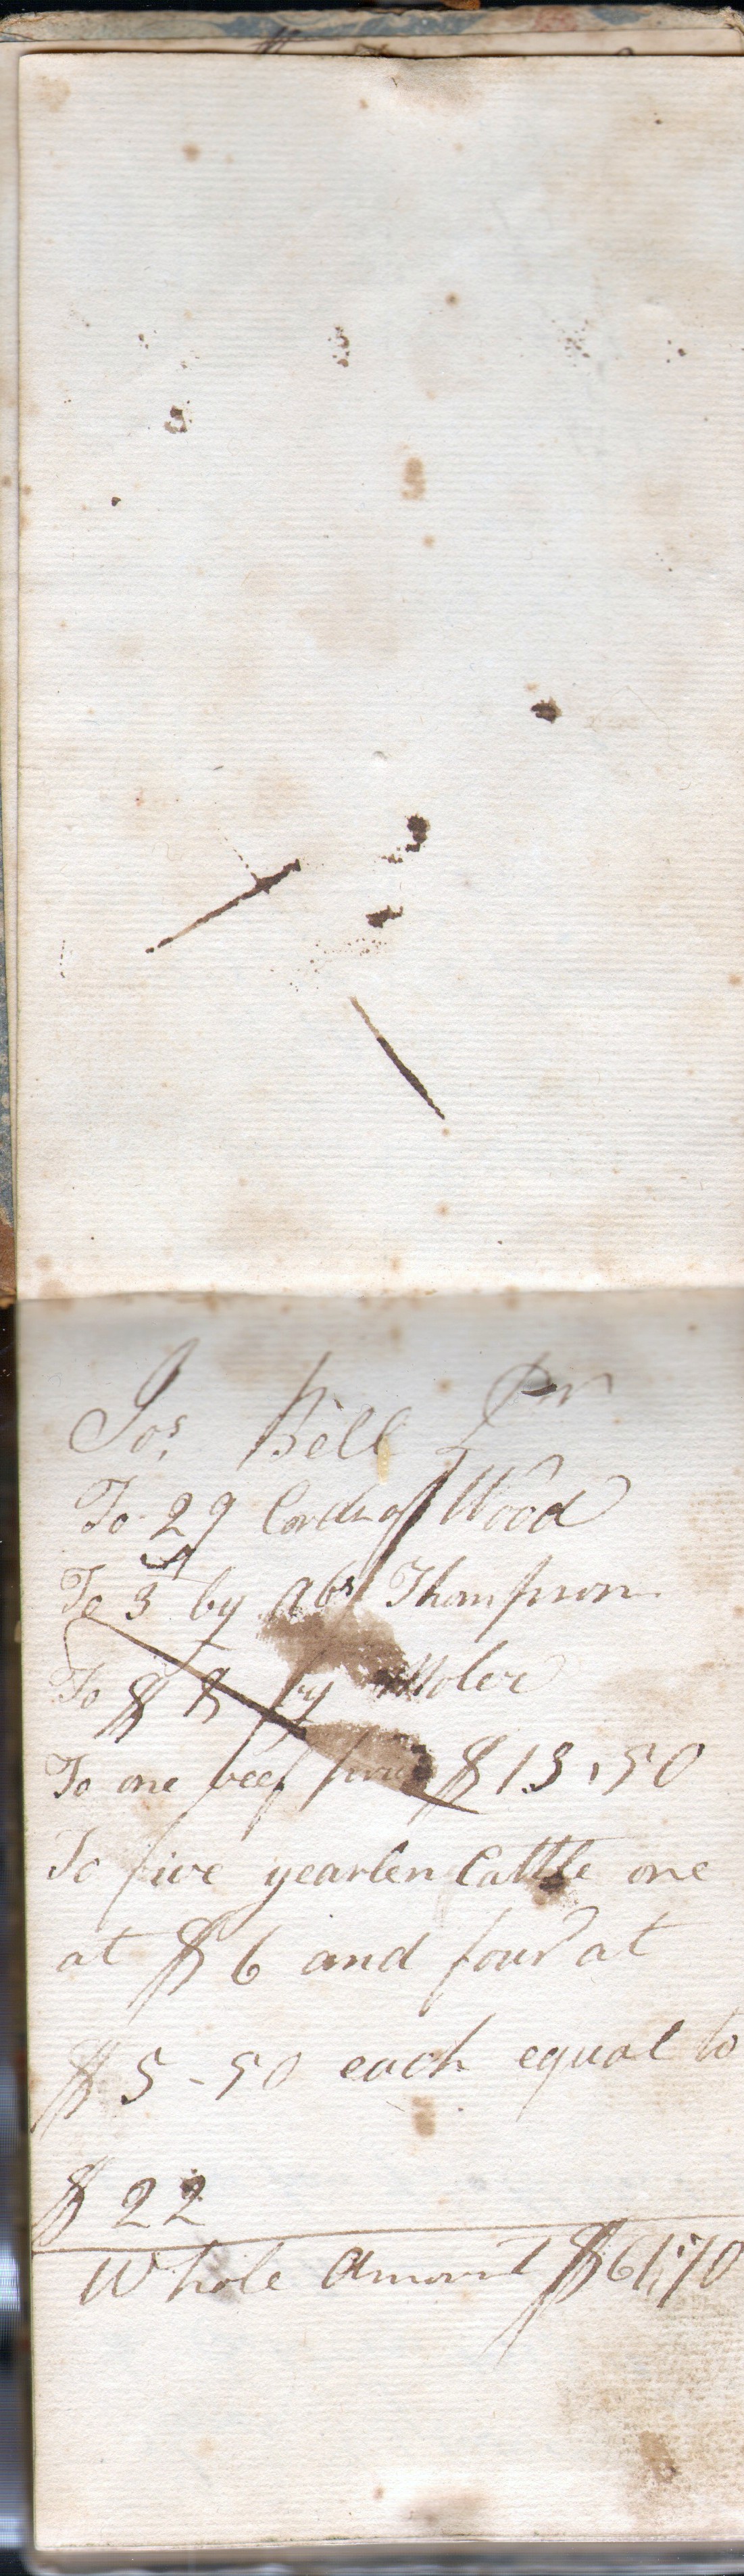 Jos. Bell Dr
To 29 Cords of Wood
To 3 by Abs Thompson
To $ 8 by Moler
To one beef $13,50
To five yearlen Cattle one
at $6 and four at
$5-50 each equal to
$22
Whole Amount $61,70